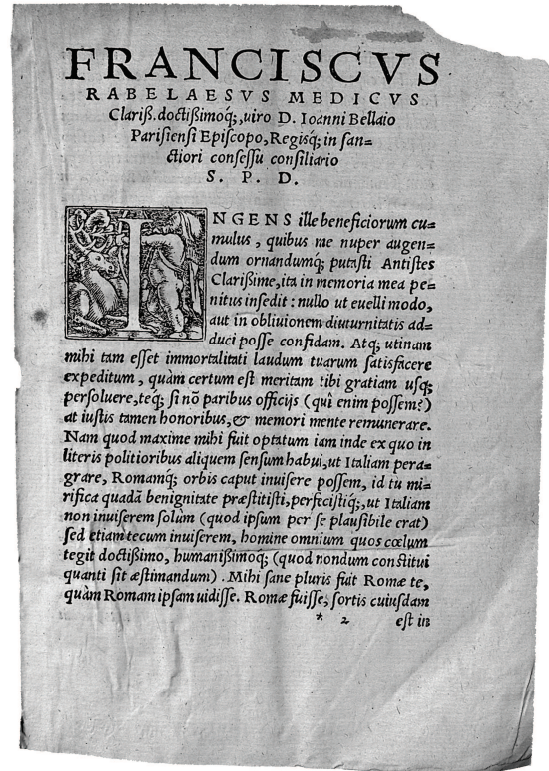 FRANCISCVS
RABELAESVS MEDICVS
Clariß. doctißimoq́;, uiro D. Ioanni Bellaio
Parisiensi Episcopo, Regisq́; in san=
ctiori consessu consiliario
S. P. D.
INGENS ille beneficiorum cu=
mulus, quibus me nuper augen=
dum ornandumq́; putasti Antistes
Clarißime, ita in memoria mea pe=
nitus insedit : nullo ut euelli modo,
aut in obliuionem diuturnitatis ad=
duci posse confidam. Atq; utinam
mihi tam esset immortalitati laudum tuarum satisfacere
expeditum, quàm certum est meritam tibi gratiam usq;
persoluere, teq; si nõ paribus officijs (quî enim possem?)
at iustis tamen honoribus, & memori mente remunerare.
Nam quod maxime mihi fuit optatum iam inde ex quo in
literis politioribus aliquem sensum habui, ut Italiam pera=
grare, Romamq́; orbis caput inuisere possem, id tu mi=
rifica quadã benignitate præstitisti, perficistiq́;, ut Italiam
non inuiserem solùm (quod ipsum per se plausibile erat)
sed etiam tecum inuiserem, homine omnium quos cœlum
tegit doctißimo, humanißimoq́; (quod nondum constitui
quanti sit æstimandum). Mihi sane pluris fuit Romæ te,
quàm Romam ipsam uidisse. Romæ fuisse, sortis cuiusdam
* 2 est in